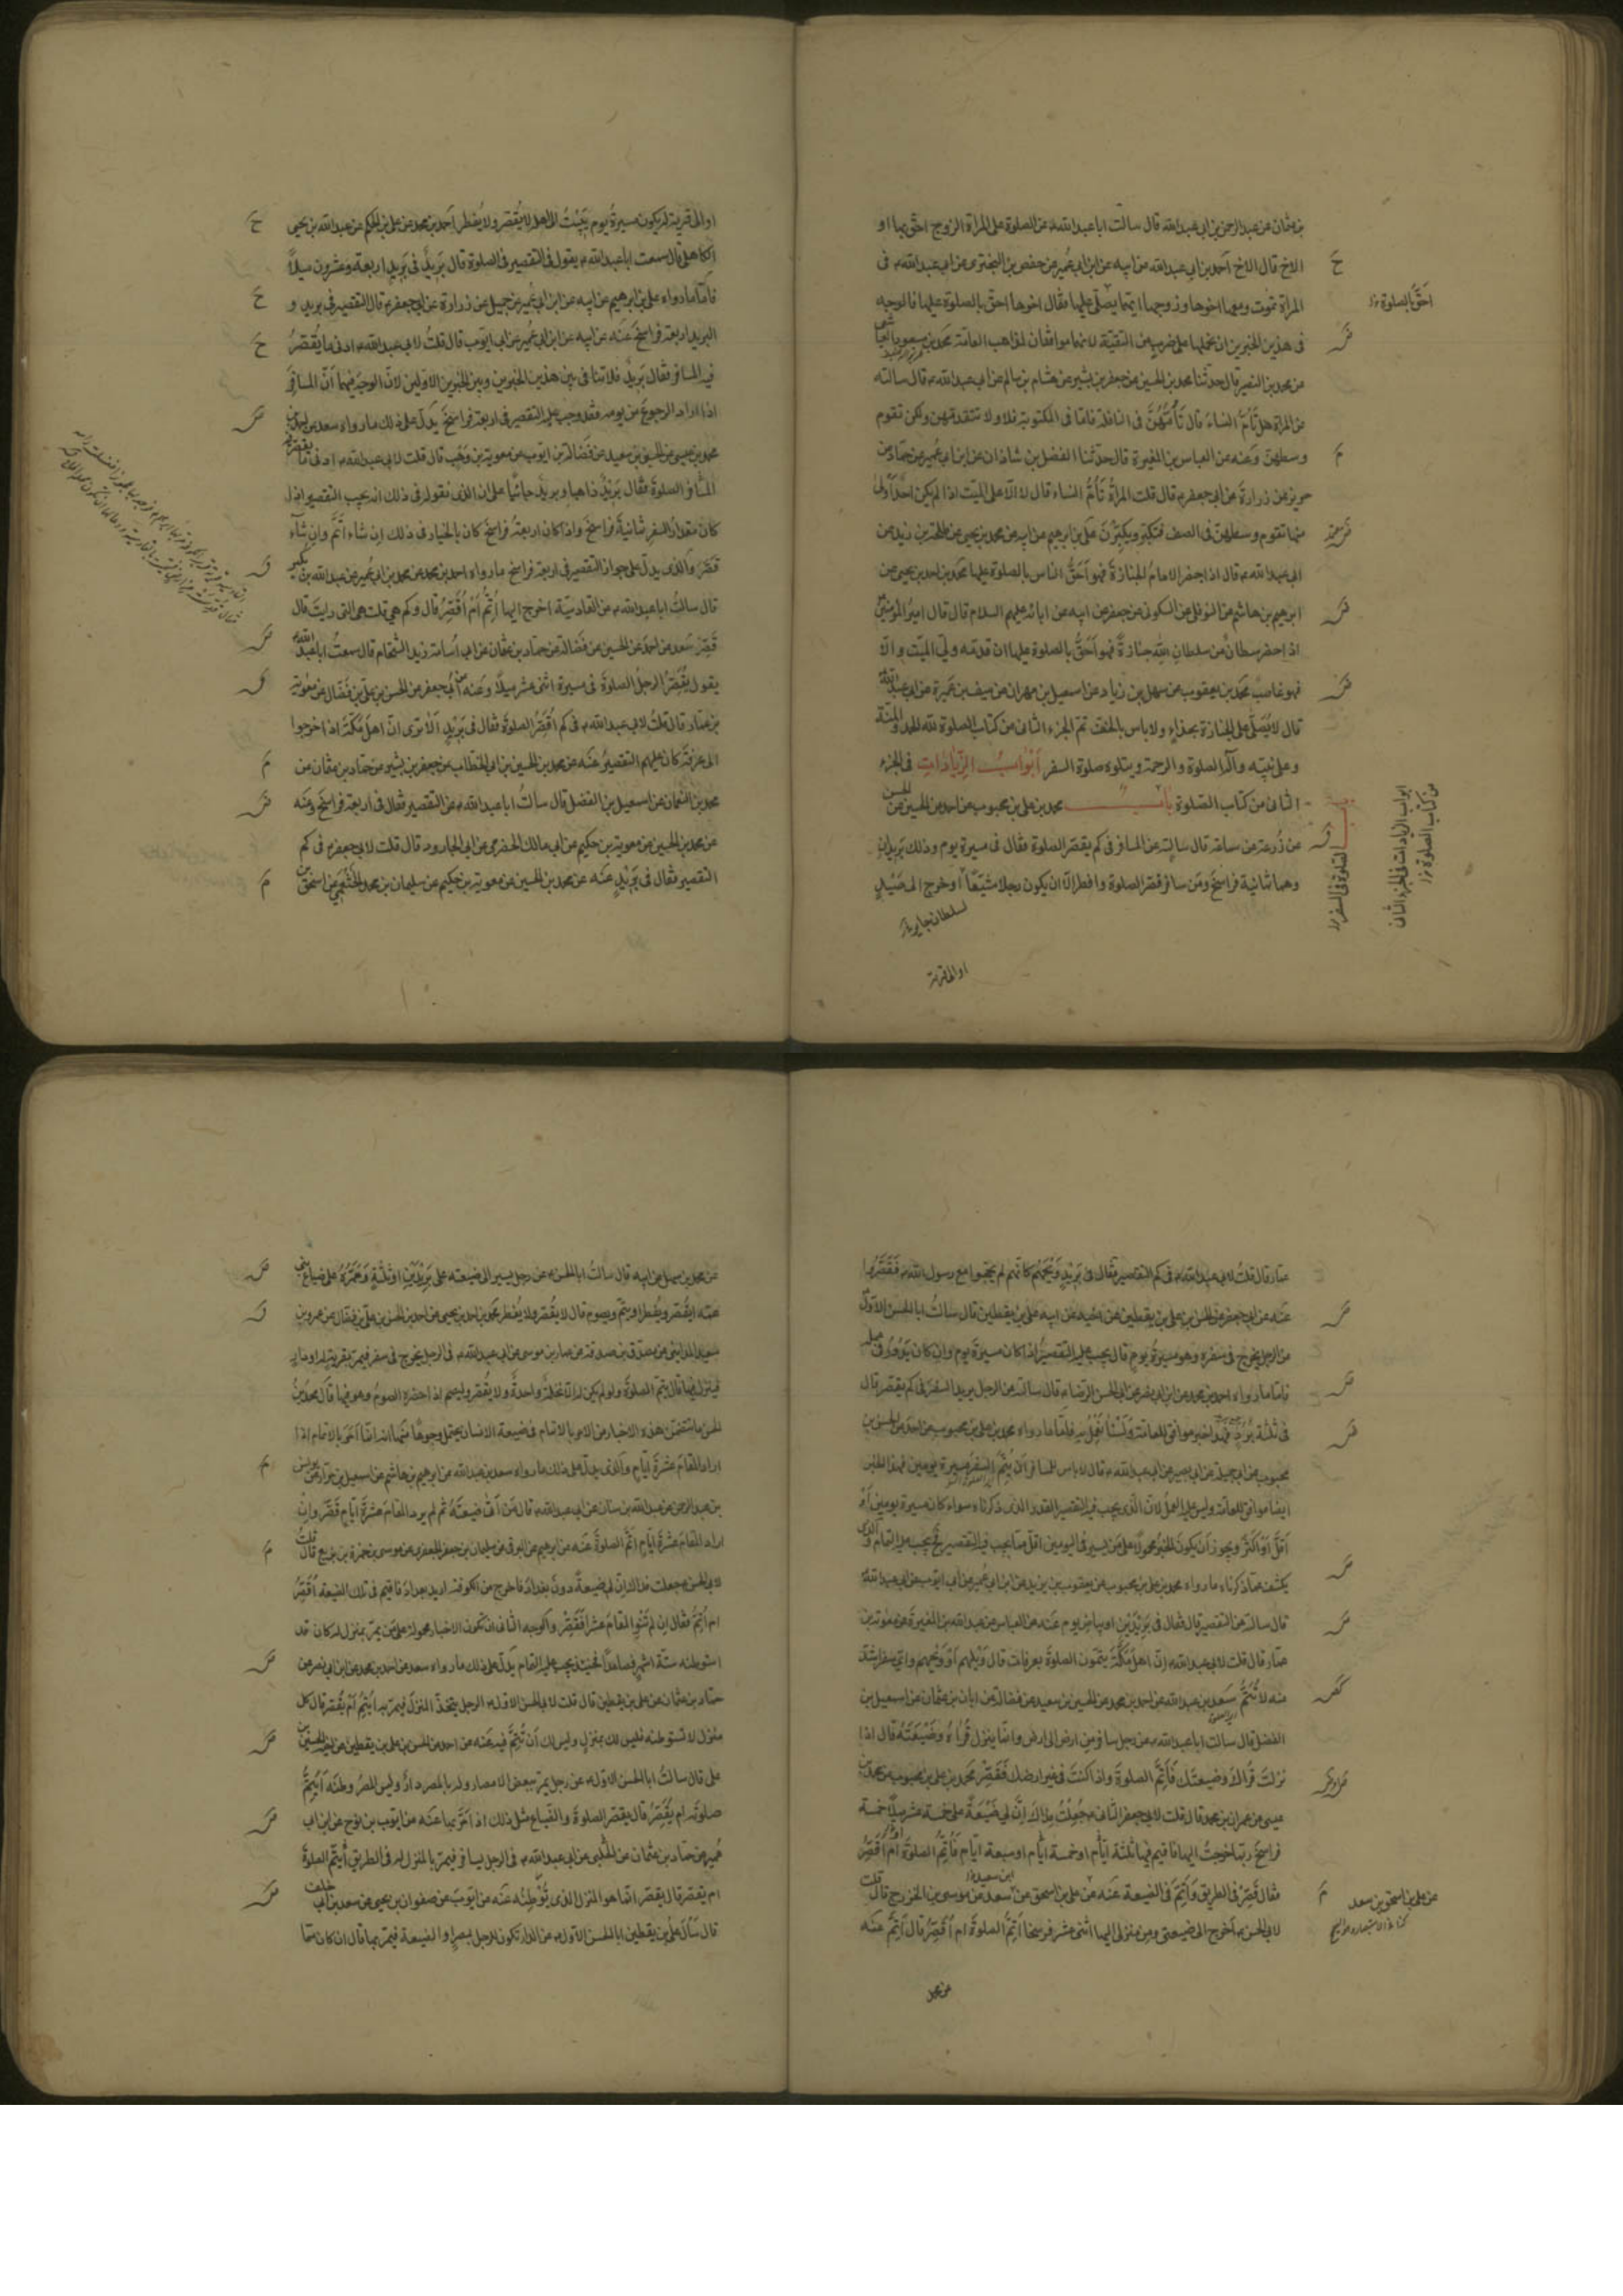 بن عثمان عن عبدالرحمن بن ابی عبدالله قال سالت اباعبدالله ع عن الصلوة علی المراة الزوج احق بها او
الاخ قال الاخ احمد بن ابی عبدالله عن ابیه عن ابن ابی عُمیر عن حفص بن البختری عن ابی عبدالله ع فی
المراة تموت ومعها اخوها وزوجها ایهما یصلّی علیها فقال اخوها احق بالصلوة علیها فالوجه
احَقُّ بالصلوة
فی هذین الخبرین ان نحملهما علی ضرب من التقیّة لانهما موافقان لمذاهب العامّة محمد بن مسعود العیاشی
عن محمد بن النصیر قال حدثنا محمد بن الحسین عن جعفر بن بشیر عن هشام بن سالم عن ابی عبدالله ع قال سالته
عن المراة هل تَأُمُّ النساءَ قال تَأُمُّهُنَّ فی النافلة فاما فی المکتوبة فلا ولا تتقدمهن ولکن تقوم
وسطهنّ وعَنه عن العباس بن المغیرة قال حدّثنا الفضل بن شاذان عن ابن ابی عُمیر عن حمّاد عن
حریز عن زرارة عن ابی جعفر ع قال قلت المراةُ تَأُمُّ النساء قال لا الّا علی المیّت اذا لم یکن احدٌ اَولیٰ
منها تقوم وسطهنّ فی الصف فتکبّر ویکبِّرْنَ علی بن ابرهیم عن ابیه عن محمد بن یحیی عن طلحة بن زید عن
ابی عبدالله ع قال اذا حضر الامامُ الجنازةَ فهو اَحَقُّ الناس بالصلوة علیها محمد بن احمد بن یحیی عن
ابرهیم بن هاشم عن النوفلی عن السکونی عن جعفر عن ابیه عن ابائه علیهم السلام قال قال امیرُ المؤمنین
اذا حضر سلطانٌ من سلطانِ اللّٰه جنازةً فهو اَحَقُّ بالصلوة علیها ان قدمه ولیّ المیّت والّا
فهو غاصب محمد بن یعقوب عن سهل بن زیاد عن اسمعیل بن مهران عن سیف بن عَمیرة عن ابی عبدالله
قال لا یُصَلّی علی الجنازة بحذاءٍ ولا باس بالخفّ تم الجزء الثانی من کتاب الصلوة لله الحمد والمنّة
وعلی نبیّه وآله الصلوة والرحمة ویتلوه صلوة السفر ابواب الزیادات فی الجزء
الثانی من کتاب الصّلوة باب محمد بن علی بن محبوب عن احمد عن الحسین عن الحسن
عن زُرعة عن سماعة قال سالته عن المسافر فی کم یقصر الصلوة فقال فی مسیرة یوم وذلک بَریدانِ
وهما ثمانیة فراسخَ ومَن سافر قصّر الصلوة وافطر الّا ان یکون رجلا مشیّعاً او خرج الی صَیْدٍ
لسلطان جایر
او الی قریة
الصلوة فی السفر
ابواب الزیادات فی الجزء الثانی
من کتاب الصلوة
او الی قریة له یکون مسیرةُ یوم یَبیْتُ الی اهله لا یُقصّر ولا یُفطر احمد بن محمد عن علی بن الحکم عن عبدالله بن یحیی
الکاهلی قال سمعت اباعبدالله ع یقول فی التقصیر فی الصلوة قال بَریدٌ فی بَریدٍ اربعة وعشرون میلاً
فامّا ما رواه علی بن ابرهیم عن ابیه عن ابن ابی عُمیر عن جمیل عن زرارة عن ابی جعفر ع قال التقصیر فی برید و
البرید اربعة فراسخَ عَنه عن ابیه عن ابن ابی عُمیر عن ابی ایّوب قال قلتُ لابی عبدالله ع ادنی ما یُقَصِّرُ
فیه المسافر فقال بَریدٌ فلا تنافی بین هذین الخبرین وبین الخبرین الاوّلین لانّ الوجهَ فیهما اَنّ المسافِرَ
اذا اراد الرجوعَ من یومه فقد وجب علیه التقصیر فی اربعة فراسخَ یدلّ علی ذلک ما رواه سعد عن احمد بن
محمد بن عیسی عن الحسین بن سعید عن فضالة بن ایّوب عن معویة بن وَهْب قال قلت لابی عبدالله ع ادنی ما یقصر فیه
المسافر الصلوةَ فقال بَرِیْدٌ ذاهبا وبریدٌ جائیًا علی ان الذی نقوله فی ذلک انه یجب التقصیر اذا
کان مقدارُ السفر ثمانیةَ فراسخَ واذا کان اربعةُ فراسخَ کان بالخیار فی ذلک ان شاء اَتَمَّ وان شآء
قصّر والّذی یدلّ علی جواز التقصیر فی اربعة فراسخ ما رواه احمد بن محمد عن محمد بن ابی عُمیر عن عبدالله بن بکیر
قال سالتُ اباعبدالله ع عن القادسیّة اخرج الیها اُتِمُّ اَمْ اُقَصِّرُ قال وکم هی قلت هی التی رایتَ قال
قَصِّرْ سَعد عن احمد عن الحسین عن فضالة عن حماد بن عثمان عن ابی اُسامة زید الشحّام قال سمعتُ اباعبدالله
یقول یُقَصِّرُ الرجلُ الصلوةَ فی مسیرة اثنی عشر میلًا وعنه عن ابی جعفر عن الحسن بن علی بن فضّال عن معویة
بن عمّار قال قلتُ لابی عبدالله ع فی کم اُقَصِّرُ الصلوةَ فقال فی بَرِیْدٍ اَلا تری انّ اهلَ مکّةَ اذا خرجوا
الی عرفةَ کان علیهم التقصیرُ عَنه عن محمد بن الحسین بن ابی الخطّاب عن جعفر بن بشیر عن حمّاد بن عثمان عن
محمد بن النعمان عن اسمعیل بن الفضل قال سالتُ اباعبدالله ع عن التقصیر فقال فی اربعة فراسخَ وعنه
عن محمد بن الحسین عن معویة بن حکیم عن ابی مالک الحضرمی عن ابی الجارود قال قلت لابی جعفر ع فی کم
التقصیر فقال فی بَرِیْدٍ عَنه عن محمد بن الحسین عن معویة بن حکیم عن سلیمان بن محمد الخَثْعَمِی عن اسحق بن
عمار قال قلتُ لابی عبدالله ع فی کم التقصیر فقال فی بَرِیْدٍ وَیْحَهُم کانّهم لم یحجّوا مع رسول الله ص فَقَصَّرُوا
عَنه عن ابی جعفر عن الحسن بن علی بن یقطین عن اخیه عن ابیه علی بن یقطین قال سالتُ اباالحسن الاوّل
عن الرجل یخرج فی سفره وهو مسیرة یومٍ قال یجب علیه التقصیرُ اذا کان مسیرةَ یوم وان کان یَدُورُ فی عمله
فامّا ما رواه احمد بن محمد عن ابن ابی نصر عن ابی الحسن الرضا ع قال سالته عن الرجل یرید السفرَ فی کم یقصّر قال
فی ثلثة بُرُدٍ فهذا خبر موافق للعامة وَلَسْنا نَعْمَلُ به فامّا ما رواه محمد بن علی بن محبوب عن احمد عن الحسن بن
محبوب عن ابی جمیلة عن ابی بصیر عن ابی عبدالله ع قال لاباس للمسافر اَن یُتِمَّ السفر مسیرة یومین فهذا الخبر
ایضا موافق للعامة ولیس علیه العملُ لانّ الّذی یجب فیه التقصیر القدر الذی ذکرناه سواء کان مسیرة یومین اَوْ
اَقَلَّ اَوْ اَکثَرَ ویجوز اَن یکونَ الخبرُ محمولًا علی مَن یسیر فی الیومین اقلّ ممّا یجب فیه التقصیر فح یجب علیه التمام والّذی
یکشف عمّا ذکرناه ما رواه محمد بن علی بن محبوب عن یعقوب بن یزید عن ابن ابی عُمیر عن ابی ایّوب عن ابی عبدالله ع
قال سالته عن التقصیر قال فقال فی بَرِیْدَیْن او بیاضِ یوم عَنه عن العباس عن عبدالله بن المغیرة عن معویة بن
عمّار قال قلت لابی عبدالله ع انّ اهل مَکَّةَ یتمّون الصلوةَ بعرفات قال وَیْلَهم اَوْ وَیْحَهم وایّ سفر اشدّ
منه لا تُتِمُّ سعد بن عبدالله عن احمد بن محمد عن الحسین بن سعید عن فضالة عن ابان بن عثمان عن اسمعیل بن
الفضل قال سالت اباعبدالله ع عن رجل سافر مِن ارضٍ الی ارض وانّما ینزل قُراه وضَیْعَتَهُ قال اذا
نزلتَ قُراک وضیعتَک فَأَتِمَّ الصلوةَ واذا کنتَ فی غیر ارضک فَقَصِّرْ محمد بن علی بن محبوب عن محمد بن
عیسی عن عمران بن محمد قال قلت لابی جعفر الثانی ع جُعِلْتُ فداک اِنَّ لی ضَیْعَةً علی خمسة عشر میلًا خمسة
فراسخَ ربّما خرجتُ الیها فاقیم فیها ثلثة ایّام او خمسة ایّام او سبعة ایّام فَأُتِمُّ الصلوةَ ام اُقَصِّرُ
فقال قَصِّرْ فی الطریق وأتِمَّ فی الضیعة عَنه عن علی بن اسحق عن سعد عن موسی بن الخزرج قال قلت
لابی الحسن ع اخرج الی ضیعتی ومِن منزلی الیها اثنی عشر فرسخا اُتِمُّ الصلوةَ ام اُقَصِّرُ قال اَتِمَّ عَنه
عن علی بن اسحق بن سعد
عن محمد بن سهل عن ابیه قال سالتُ اباالحسن ع عن رجل یسیر الی ضیعته علی بَرِیْدَیْن او ثلثةٍ ومَمَرُّه علی ضیاع بنی
عمّه ایقصّر ویُفطر او یتمّ ویصوم قال لا یُقصّر ولا یُفطر محمد بن احمد بن یحیی عن احمد بن الحسن بن علی بن فضّال عن عمرو بن
سعید المداینی عن مصدّق بن صدقة عن عمار بن موسی عن ابی عبدالله ع فی الرجل یخرج فی سفر فیمرّ بقریة له او دار
فینزل فیها قال یتمّ الصلوةَ ولو لم یکن له الا نخلةٌ واحدةٌ ولا یُقصّر ولیصم اذا حضره الصومُ وهو فیها قال محمد بنُ
الحسن ما تتضمّن هذه الاخبار من الامر بالاتمام فی ضیعة الانسان یحتمل وجوهًا منها انه انّما اَمَرَ بالاتمام اذا
اراد المقامَ عشرةَ ایّام والّذی یدلّ علی ذلک ما رواه سعد بن عبدالله عن ابرهیم بن هاشم عن اسمعیل بن مرّار عن یونس
بن عبدالرحمن عن عبدالله بن سنان عن ابی عبدالله ع قال مَن اَتی ضیعتَهُ ثم لم یرد المقامَ عشرةَ ایّام قَصَّرَ وان
اراد المقامَ عشرةَ ایّام اَتَمَّ الصلوةَ عَنه عن ابرهیم عن البرقی عن سلیمان بن جعفر الجعفری عن موسی بن حمزة بن بزیع قال قلت
لابی الحسن ع جعلت فداک اِنّ لی ضیعةً دونَ بغدادَ فاخرج من الکوفة ارید بغدادَ فاقیم فی تلک الضیعة اُقَصِّرُ
ام اُتِمُّ فقال ان لم تَنْوِ المقامَ عشرا فَقَصِّرْ والوجه الثانی ان تکون الاخبار محمولة علی مَن یمرّ بمنزل له کان قد
استوطنه ستّة اشهرٍ فصاعدًا فحینئذ یجب علیه التمام یدلّ علی ذلک ما رواه سعد عن احمد بن محمد عن ابن ابی نصر عن
حمّاد بن عثمان عن علی بن یقطین قال قلت لابی الحسن الاوّل ع الرجل یتخذ المنزلَ فیمرّ به اَیُتِمُّ اَمْ یُقصّر قال کل
منزل لا تستوطنه فلیس لک بمنزل ولیس لک اَن تُتِمَّ فیه عَنه عن احمد عن الحسن بن علی بن یقطین عن اخیه الحسین بن
علی قال سالتُ اباالحسن الاوّل ع عن رجل یمرّ ببعض الامصار وله بالمصر دارٌ ولیس المصرُ وطنَه اَیُتِمُّ
صلوتَه ام یُقَصِّرُ قال یقصّر الصلوةَ والضّیاع مثل ذلک اذا مَرَّ بها عَنه عن ایّوب بن نوح عن ابن ابی
عُمیر عن حمّاد بن عثمان عن الحلبی عن ابی عبدالله ع فی الرجل یسافر فیمرّ بالمنزل له فی الطریق اُیتمّ الصلوةَ
ام یقصّر قال یقصّر انّما هو المنزل الذی تَوَطَّنَهُ عَنه عن ایّوبَ عن صفوان بن یحیی عن سعد بن ابی خلف
قال سَأَلَ علی بن یقطین اباالحسن الاوّل ع عن الدار تکون للرجل بمصرٍ او الضیعة فیمرّ بها قال ان کان ممّا